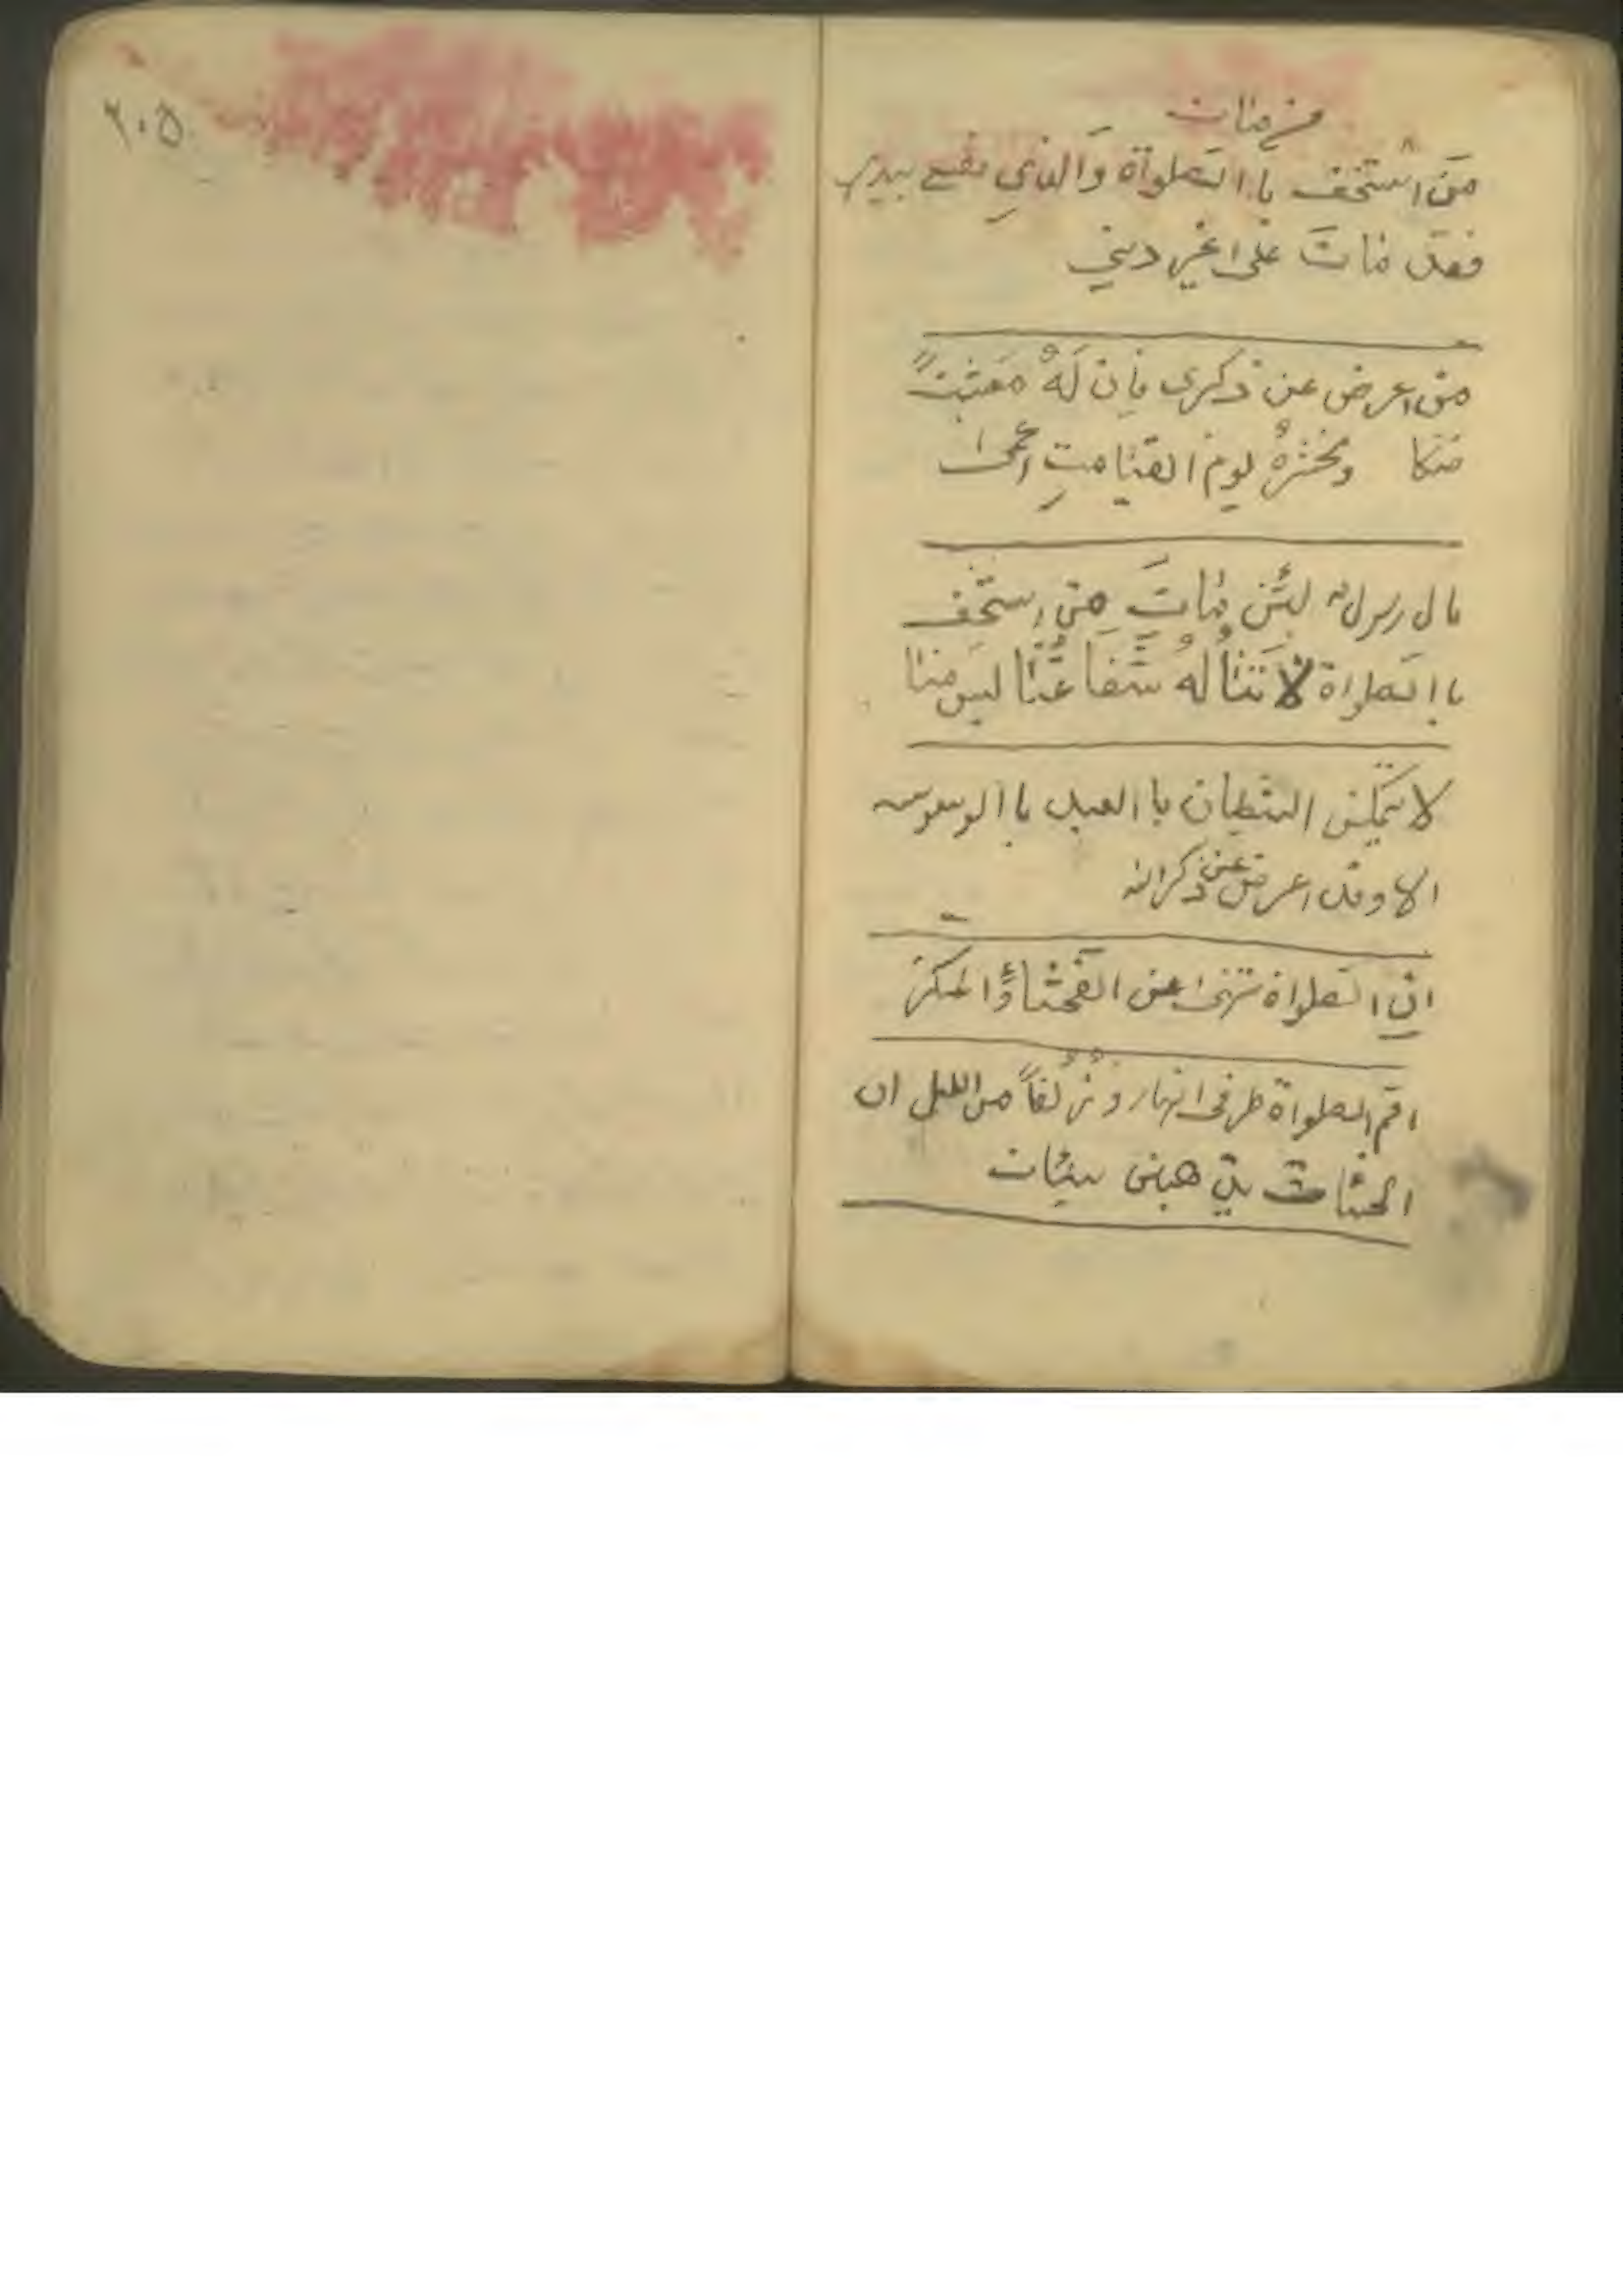 من مات
مَن اسْتخف بَا الصَلواة وَالذيِ نفسي بيدي
فقد ماتَ علی غیر دیني
من اعرض عن ذکری فاِن لَهُ مَعیشتً
ضنکا ونحشرهُ یوم القیامتِ اعمیٰ
قال رسول لیئن ماتَ مِن استخَف
با الصَلواة لا تنالُهُ شفاعتُنا لیسَ منا
لا یتمکن الشیطان با العبد با الوسوسه
الا وقد اعرض عن ذکرالله
انِ الصَلواة تنهیٰ عن الفحشاءِ والمنکر
اقم الصلواة طرفی انهار وَ زُلُفاً من اللیل ان
الحسنات یذهبن سیئات
۲۰۵